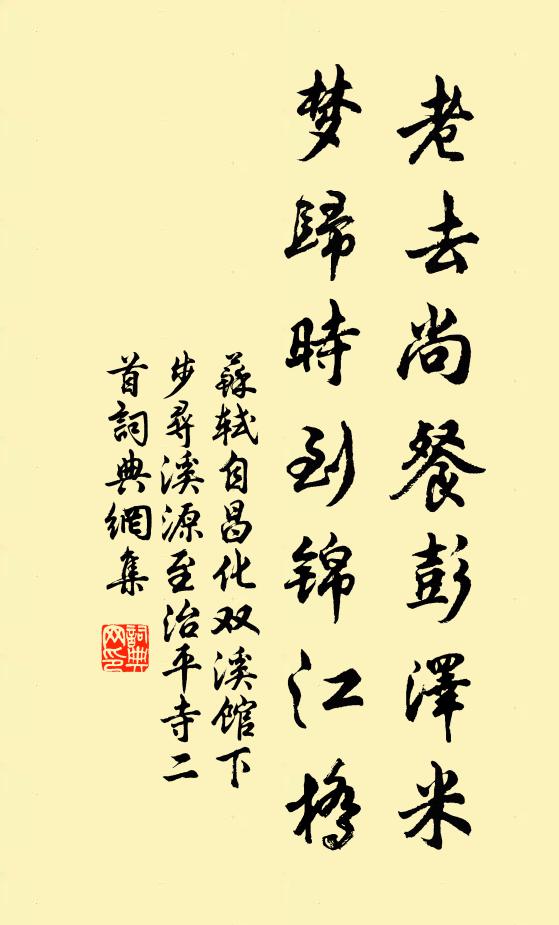 老去尚餐彭澤米
梦歸時到锦江橋
蘇轼自昌化双溪馆下
步尋溪源至治平寺二
首詞典網集
詞典
网印